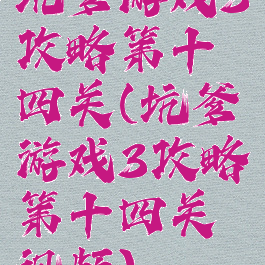 坑爹游戏3
攻略第十
四关(坑爹
游戏3攻略
第十四关
视频)